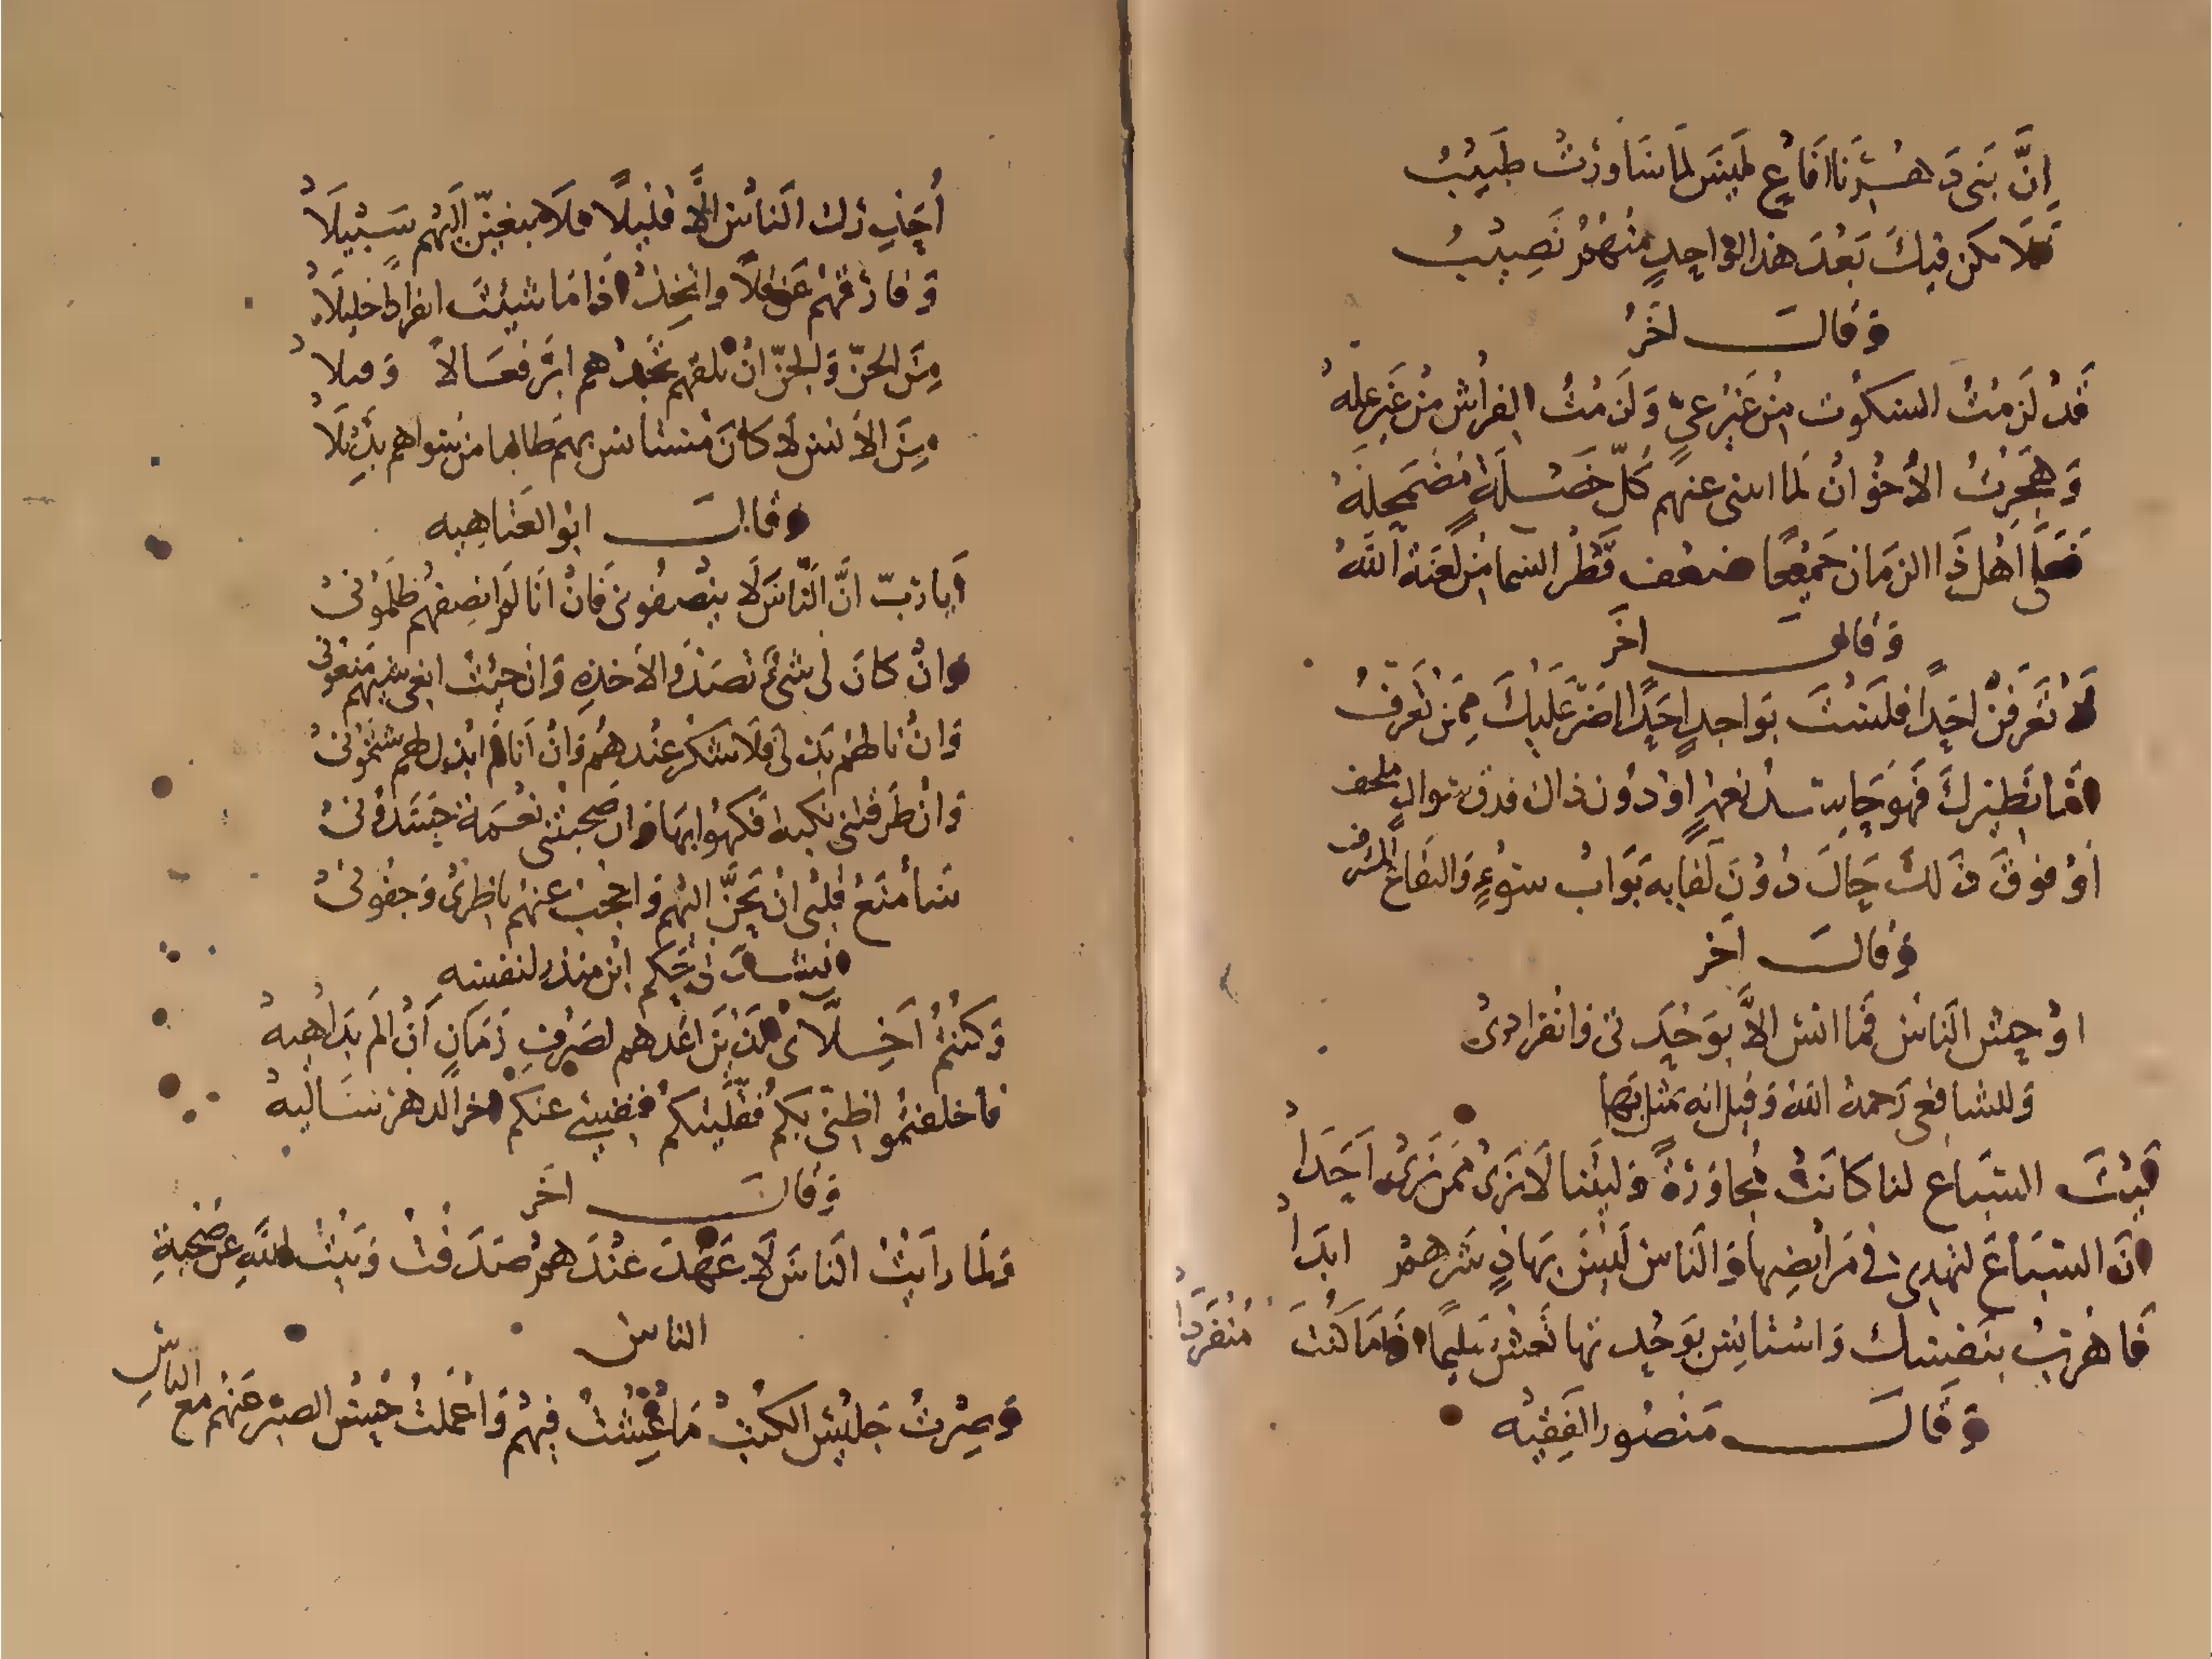 إنَّ بَنى دَهْرِنا أفَاعٍ ليسَ لما سَاوَرَتْ طَبيْبُ
فلا يكن فيكَ بَعْدَ هذا الواحِدِ منْهُمْ نَصِيْبُ
وَقالَ اخَرُ
قَدْ لَزمْتُ السكُوت مِنْ غَيْرِ عيٍّ وَلَزمْتُ الفِراش مْن غَيرِ علهْ
وَهَجَرْتُ الأخْوانْ لَما اتتنى عنهم كلّ خَصْلَةٍ مُضمَحِلهْ
فَعَلى اهْل ذَا الزمَان جَميْعًا ضعْف قَطْرِ السما مْن لَعْنَة اللهْ
وَقالَ اخَر
لاَ تَعْرفَنْ احَدًا فلَسْتَ بوَاجدٍ احَدًا اضَرّ عَلَيْكَ مِمن تَعرفُ
امَّا نَظِيْركَ فَهوَ حَاسد نعمةٍ اوْ دُون ذاك فذو سؤالٍ ملحف
اوْ فوقَ ذَلكَ حَالَ دُوْنَ لقَايه بَوّابُ سوْءٍ وَاليفَاعْ المشرف
وَقالَ آخَر
اوْحِشِ الناسْ فَما انس الاَّ بوَحْدَتى وانفرادىْ
وَللشافعى رَحمةُ اللهْ وَقيل انه تمثل بهَا
لَيْتَ السّبَاع لنا كانَتْ مُجَاورَةً وَليتَنا لاَ نَرَىْ ممن نَرَىْ احَدَا
انَّ السّبَاعَ لتهدى فى مَرَابضِهَا وَالنَاس لَيسَ بهادٍ شَرهمْ ابدَا
فَاهْربْ بنَفسك وَاستَانِس بوَحْدتها تَعش سَليمًا اذا ما كنْتَ مُنْفَرِدَا
وَقَالَ مَنصُور الفَقِيْه
أحَذِّرك الناسَ الاَّ قليلاً فلاَ تبغينّ اليهم سَبيلاَ
وَفارقهمْ عَن قلاً واتخِذْ اذا مَا شيئتَ انفرادًا خليلاَ
مِنَ الجنّ وَالجنّ انْ تلقهم تجدهم ابَرَّ فعَالاً وَقيلا
مِنَ الاَنس لاَ كانَ مُستانس بهم طالبا من سواهم بدِيْلاَ
وَقالَ ابو العَتاهيه
أيا رَبّ انَّ النَّاسَ لاَ ينْصفُوننى فَانْ أنَا لَمْ انصِفهُم ظَلَمُونىْ
وَانْ كانَ لى شىْءٌ تصَدَّوا لاخذِهِ وَانْ جئْت ابغى سَيْبهم مَنعُونى
وَانْ نَالهم بَذلى فَلا شكْرَ عنْدهُم وَانْ أنا لَمْ ابْذل لهم شتمُونىْ
وَانْ طَرقتنى نكبة فكهُوا بهَا وَان صَحِبتنى نعْمَة حَسَدُونىْ
سَأمنَعُ قلبى انْ يَحنَّ اليْهم وَاحجُب عنهُم ناظرىْ وَجفُونىْ
انشدنى حَكم ابن منذر لنفسه
وَكنْتُمْ أخِلاَّىْ الذيْنَ اعَدهم لصَرْفِ زَمَانٍ انْ ألم بدَاهيهْ
فاخلفتمُوا ظنّى بكمْ فقَليتكمْ فنفسِى عنكمْ اخر الدهر سَاليهْ
وَقالَ اخَر
وَلمَا رَايْتُ الناسَ لاَ عَهْدَ عنْدَهمْ صَدَفْتُ وَبَيْت اللهِ عَنْ صُحْبَةِ
الناسِ
وَصِرْتُ جَليْس الكتْبْ مَا عِشْتُ فيهمْ وَاعْمَلتُ حُسْنَ الصبْر عَنهُم مع الياسِ